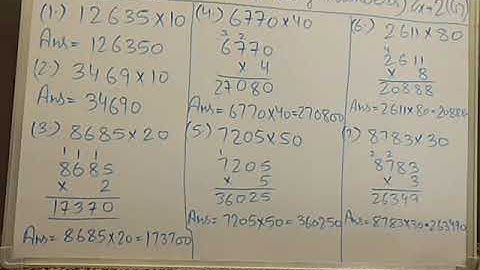 Ex-2(G)
(1.) 12635×10
Ans = 126350
(2.) 3469×10
Ans = 34690
(3.) 8685×20
1 1 1
8685
× 2
17370
Ans = 8685×20=173700
(4.) 6770×40
3 2
6770
× 4
27080
Ans = 6770×40=270800
(5.) 7205×50
1
7205
× 5
36025
Ans = 7205×50=360250
(6.) 2611×80
4
2611
× 8
20888
Ans = 2611×80=20888
(7.) 8783×30
2 2
8783
× 3
26349
Ans = 8783×30=263490